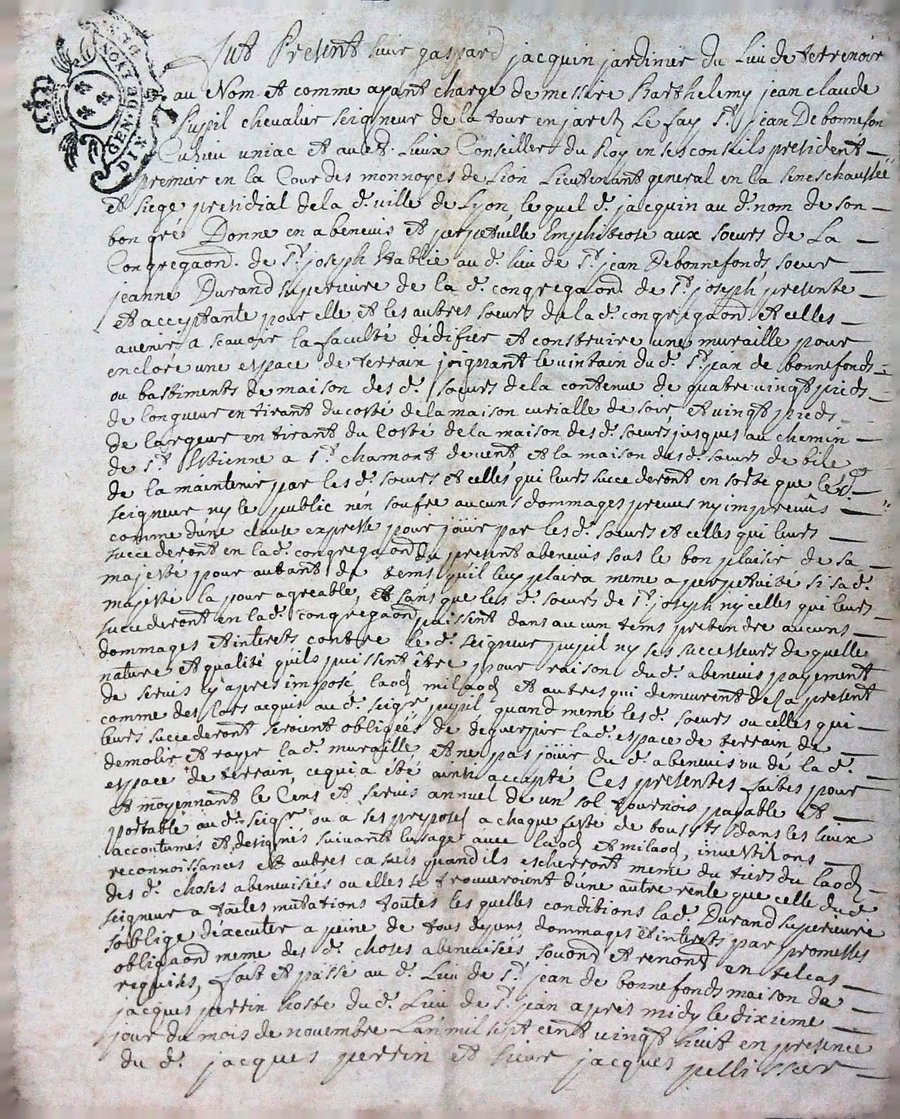 GEN DE LION DIX DEN
fut Present sieur gaspard jacquin jardinier du Lieu de terrenoire
au Nom et comme ayant charge de messire Barthelemy jean claude
Pupil chevalier seigneur de la tour en jarez Le fay St. jean De bonnefon
Cuhieu uniac et autet. Lieux Conseiller du Roy en ses conseils president —
premier en la Cour des monnoyes de Lion Lieutenant general en la seneschaussée
et siege presidial dela d. ville de Lyon, le quel d. jacquin au d. nom de son —
bon gré Donne en abenevis et perpetuelle Emphiteose aux soeurs de La —
Congregaond. de St. joseph Etablie au d. lieu de St. jean Debonnefonds soeur —
jeanne Durand superieure de la d. congregaond de St. joseph presente
et acceptante pour elle et les autres soeurs de la d. congregaond et celles —
avenir, a scavoir la faculté dédifier et construire une muraille pour
enclore une espace de terrain joignant le vintain du d. St. jean de bonnefonds
ou bastiments de maison des d. soeurs de la contenue de quatre vingt pieds
de longueur en tirant du costé de la maison curialle de soir et vingt pieds
de largeur en tirant du costé de la maison des d. soeurs jusques au chemin —
de St. Estienne a St. chamont de vent et la maison des d. soeurs de bize
de la maintenir par les d. soeurs et celles qui leurs succederont en sorte que le d.
seigneur ny le public n'en soufre aucuns dommages preveus ny impreveus —
comme d'une clause expresse pour jouir par les d. soeurs et celles qui leurs
succederont en la d. congregaond du present abenevis sous le bon plaisir de sa —
majesté pour autant de tems qu'il leur plaira meme a perpetuité si sa d.
majesté la pour agreable, et sans que les d. soeurs de St. joseph ny celles que leurs
succederont en la d. congregaond puissent dans aucun tems pretendre aucuns —
dommages et interests contre le d. seigneur pupil ny ses successeurs de quelle
nature et qualité quils puissent être pour raison du d. abenevis payement
de servis cy apres imposé, laod milaod et autres qui demeurent de la present
comme des lors acquis au d. seigr. pupil quand meme les d. soeurs ou celles qui —
leurs succederont seroient obligées de deguerpir la d. espace de terrain de —
demolir et rayer la d. muraille et ne pas jouir du d. abenevis ou de la d.
espace de terrain, ce qui a été ainsi accepté Ces presentes faites pour
et moyennant le Cens et servis annuel de un sol tournois payable et —
portable au d. seigr ou a ses preposés a chaque feste de toussts dans les lieux
accoutumes et designés suivant lusage avec laod et milaod, investisons —
reconnoissances et autres casuels quand ils escherront meme du tiers du laod —
des d. choses abenevisées ou elles se trouveroient d'une autre rente que celle du d.
seigneur a toutes mutations toutes les quelles conditions la d. Durand superieure
s'oblige d'executer a peine de tous depens, dommages et interests par promesses
obligaond meme des d. choses abenevisées sous et renond en tel cas —
requises, fait et passé au d. Lieu de St. jean de bonnefonds maison de
jacques perrin hoste du d. Lieu de St. jean apres midy le dixieme —
jour du mois de novembre Lan mil sept cent vingt huit en presence
du d. jacques perrin et sieur jacques pellissier —